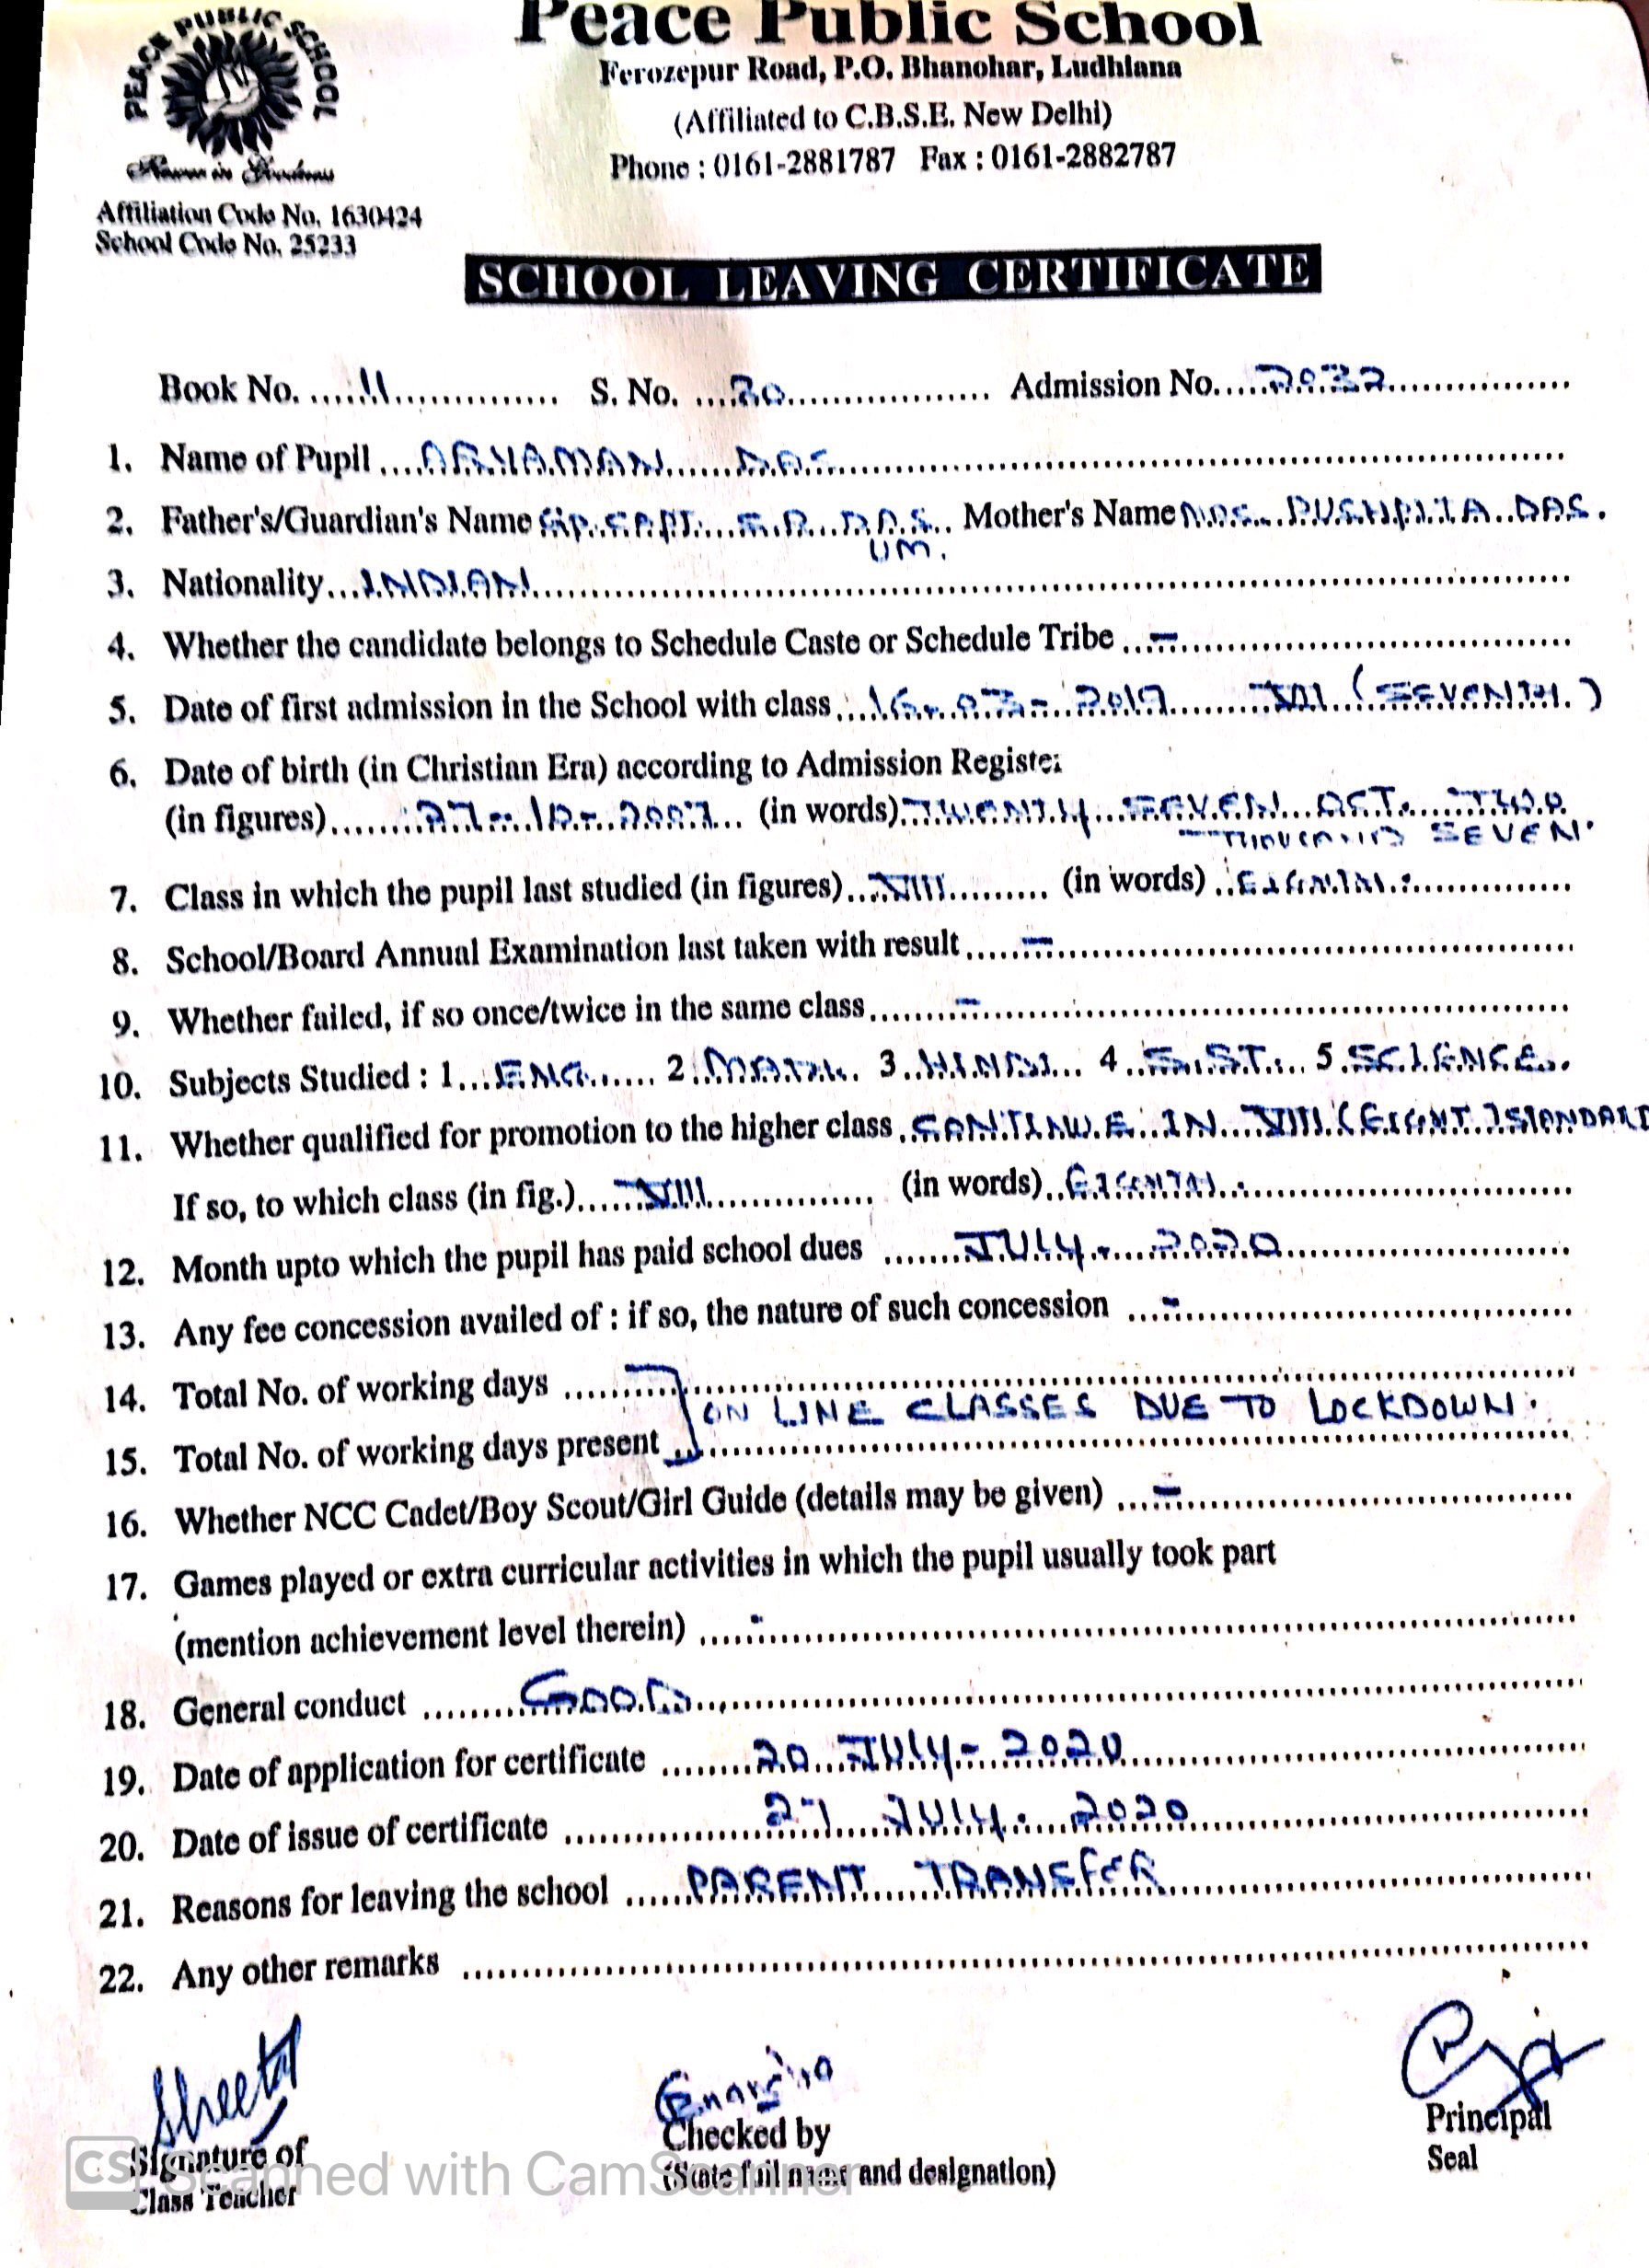 PEACE PUBLIC SCHOOL
Peace Public School
Ferozepur Road, P.O. Bhanohar, Ludhiana
(Affiliated to C.B.S.E. New Delhi)
Phone : 0161-2881787 Fax : 0161-2882787
Affiliation Code No. 1630424
School Code No. 25233
SCHOOL LEAVING CERTIFICATE
Book No. 11 S. No. 30 Admission No. 2032
1. Name of Pupil ARYAMAN DAS
2. Father's/Guardian's Name GP. CAPT. S.R. DAS Mother's Name MRS. PUSHPITA DAS.
3. Nationality INDIAN
4. Whether the candidate belongs to Schedule Caste or Schedule Tribe –
5. Date of first admission in the School with class 16-03-2019 VII (SEVENTH.)
6. Date of birth (in Christian Era) according to Admission Register
(in figures) 27-10-2007 (in words) TWENTY SEVEN OCT. TWO
THOUSAND SEVEN.
7. Class in which the pupil last studied (in figures) VIII (in words) EIGHTH.
8. School/Board Annual Examination last taken with result –
9. Whether failed, if so once/twice in the same class –
10. Subjects Studied : 1 ENG. 2 MATH. 3 HINDI 4 S.ST. 5 SCIENCE.
11. Whether qualified for promotion to the higher class CONTINUE IN VIII (EIGHT) STANDARD
If so, to which class (in fig.) VIII (in words) EIGHTH.
12. Month upto which the pupil has paid school dues JULY. 2020
13. Any fee concession availed of : if so, the nature of such concession -
14. Total No. of working days
ON LINE CLASSES DUE TO LOCKDOWN.
15. Total No. of working days present
16. Whether NCC Cadet/Boy Scout/Girl Guide (details may be given) –
17. Games played or extra curricular activities in which the pupil usually took part
(mention achievement level therein) -
18. General conduct GOOD
19. Date of application for certificate 20 JULY - 2020
20. Date of issue of certificate 27 JULY. 2020
21. Reasons for leaving the school PARENT TRANSFER
22. Any other remarks
Sheetal
Signature of
Class Teacher
Checked by
(State full name and designation)
Principal
Seal
CS Scanned with CamScanner